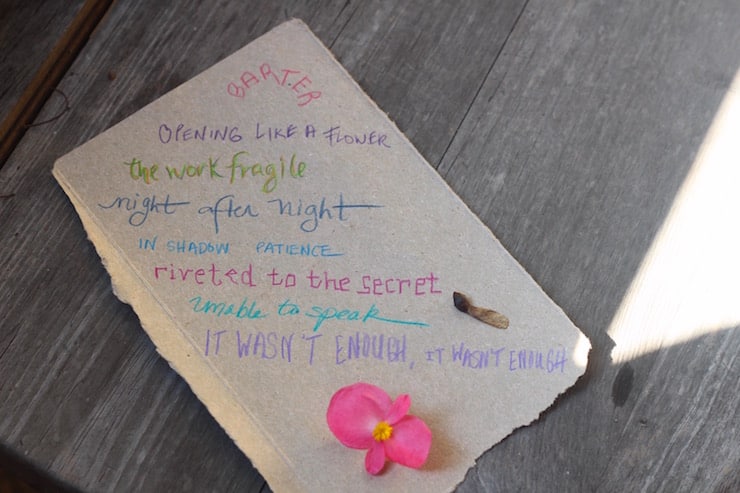 BARTER
OPENING LIKE A FLOWER
the work fragile
night after night
IN SHADOW PATIENCE
riveted to the secret
unable to speak
IT WASN'T ENOUGH, IT WASN'T ENOUGH